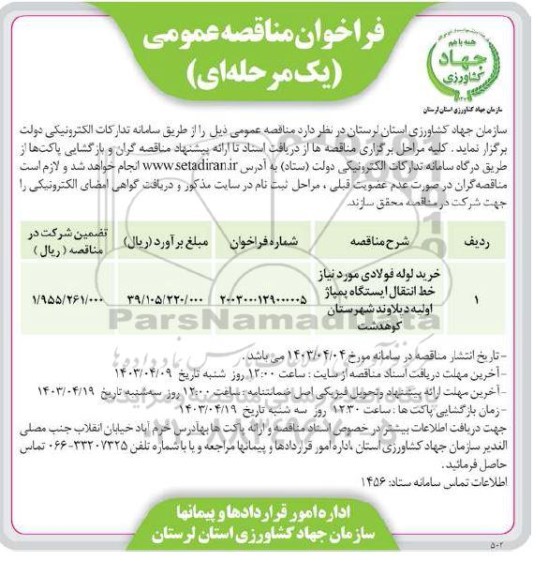 فراخوان مناقصه عمومی
(یک مرحله‌ای)
همه با هم
جهاد
کشاورزی
سازمان جهاد کشاورزی استان لرستان
سازمان جهاد کشاورزی استان لرستان در نظر دارد مناقصه عمومی ذیل را از طریق سامانه تدارکات الکترونیکی دولت
برگزار نماید . کلیه مراحل برگزاری مناقصه ها از دریافت اسناد تا ارائه پیشنهاد مناقصه گران و بازگشایی پاکت‌ها از
طریق درگاه سامانه تدارکات الکترونیکی دولت (ستاد) به آدرس www.setadiran.ir انجام خواهد شد و لازم است
مناقصه‌گران در صورت عدم عضویت قبلی ، مراحل ثبت نام در سایت مذکور و دریافت گواهی امضای الکترونیکی را
جهت شرکت در مناقصه محقق سازند.
ردیف شرح مناقصه شماره فراخوان مبلغ برآورد (ریال) تضمین شرکت در مناقصه ( ریال )
۱ خرید لوله فولادی مورد نیاز خط انتقال ایستگاه پمپاژ اولیه دیلاوند شهرستان کوهدشت ۲۰۰۳۰۰۰۱۲۹۰۰۰۰۰۵ ۳۹/۱۰۵/۲۲۰/۰۰۰ ۱/۹۵۵/۲۶۱/۰۰۰
ParsNamadData
- تاریخ انتشار مناقصه در سامانه مورخ ۱۴۰۳/۰۴/۰۴ می باشد.
- آخرین مهلت دریافت اسناد مناقصه از سایت : ساعت ۱۲:۰۰ روز شنبه تاریخ ۱۴۰۳/۰۴/۰۹
- آخرین مهلت ارائه پیشنهاد و تحویل فیزیکی اصل ضمانتنامه : ساعت ۱۲:۰۰ روز سه‌شنبه تاریخ ۱۴۰۳/۰۴/۱۹
- زمان بازگشایی پاکت ها : ساعت ۱۲:۳۰ روز سه شنبه تاریخ ۱۴۰۳/۰۴/۱۹
جهت دریافت اطلاعات بیشتر در خصوص اسناد مناقصه و ارائه پاکت ها به آدرس خرم آباد خیابان انقلاب جنب مصلی
الغدیر سازمان جهاد کشاورزی استان ،اداره امور قراردادها و پیمانها مراجعه و یا با شماره تلفن ۳۳۲۰۷۳۲۵-۰۶۶ تماس
حاصل فرمائید .
اطلاعات تماس سامانه ستاد: ۱۴۵۶
اداره امور قراردادها و پیمانها
سازمان جهاد کشاورزی استان لرستان
۵۰۲